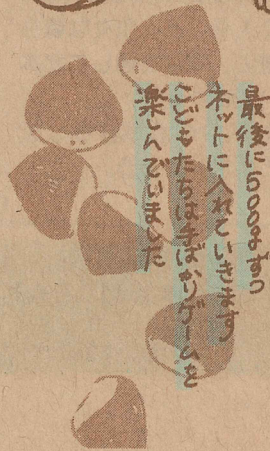 最後に500gずつ
ネットに入れていきます
こどもたちは手ばかりゲームを
楽しんでいました